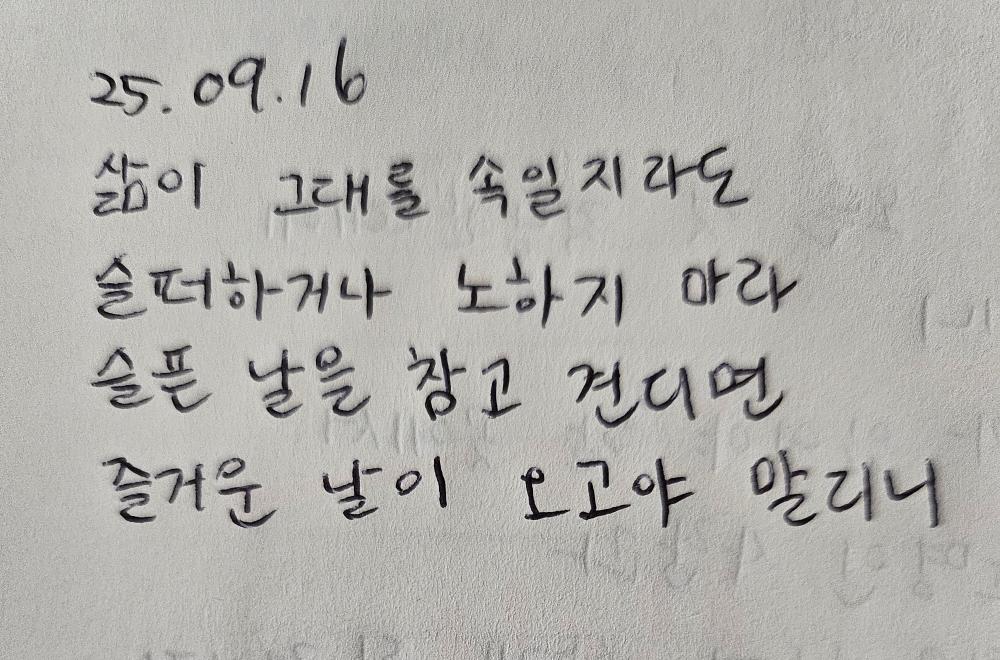 25.09.16
삶이 그대를 속일지라도
슬퍼하거나 노하지 마라
슬픈 날을 참고 견디면
즐거운 날이 오고야 말리니